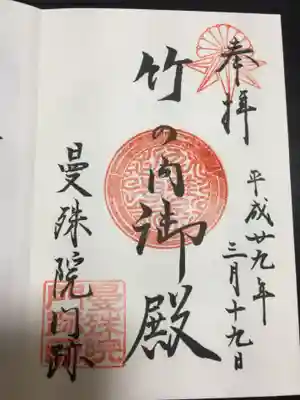 奉拝
平成廿九年
三月十九日
竹の内御殿
曼殊院門跡
曼殊院